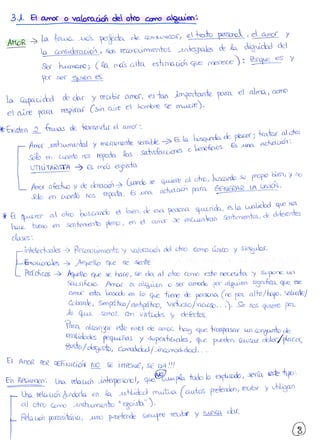 3.1. El amor o valoración del otro como alguien:
AMOR → La forma más perfecta de comunicación, el trato personal, el amor y
la consideración, son reconocimientos integrales de la dignidad del
Ser humano; (la más alta estimación que merece): Porque es y
por ser quien es.
La capacidad de dar y recibir amor, es tan importante para el alma, como
el aire para respirar (sin aire el hombre se muere).
* Existen 2 formas de transmitir el amor:
Amor instrumental y meramente sensible → Es la búsqueda de placer; tratar al otro
Sólo en cuanto nos reporta las satisfacciones o beneficios. Es una actuación
UTILITARISTA → es más egoísta
Amor afectivo y de donación → Cuando se quiere al otro, buscando su propio bien, y no
Sólo en cuanto nos reporta. Es una actuación para GENERAR LA UNIÓN.
* El querer al otro buscando el bien de esa persona querida, es la cualidad que nos
hace tener un sentimiento pleno, en el amor se encuentran sentimientos de diferentes
clases:
Intelectuales → Reconocimiento y valoración del otro como único y singular.
Emocionales → Aquello que se siente
Prácticos → Aquello que se hace, se da al otro como este necesita y supone un
sacrificio. Amar a alguien o ser amado por alguien significa que ese
amor está basado en lo que tiene de persona (no por alto/bajo, valiente/
cobarde, simpático/antipático, virtuoso/vicioso...). Se nos quiere por
lo que somos, con virtudes y defectos.
Para alcanzar este nivel de amor hay que traspasar un conjunto de
cualidades pequeñas y superficiales, que pueden causar dolor/placer,
gusto/disgusto, comodidad/incomodidad...
El AMOR POR DEFINICIÓN NO SE IMPONE, SE DA!!!
En Resumen: Una relación interpersonal, que NO cumpla todo lo explicado, sería este tipo:
Una relación fundada en la utilidad mutua (ambos pretenden recibir y utilizan
al otro como instrumento "egoísta").
Relación parasitaria, uno pretende siempre recibir y nunca dar.
3